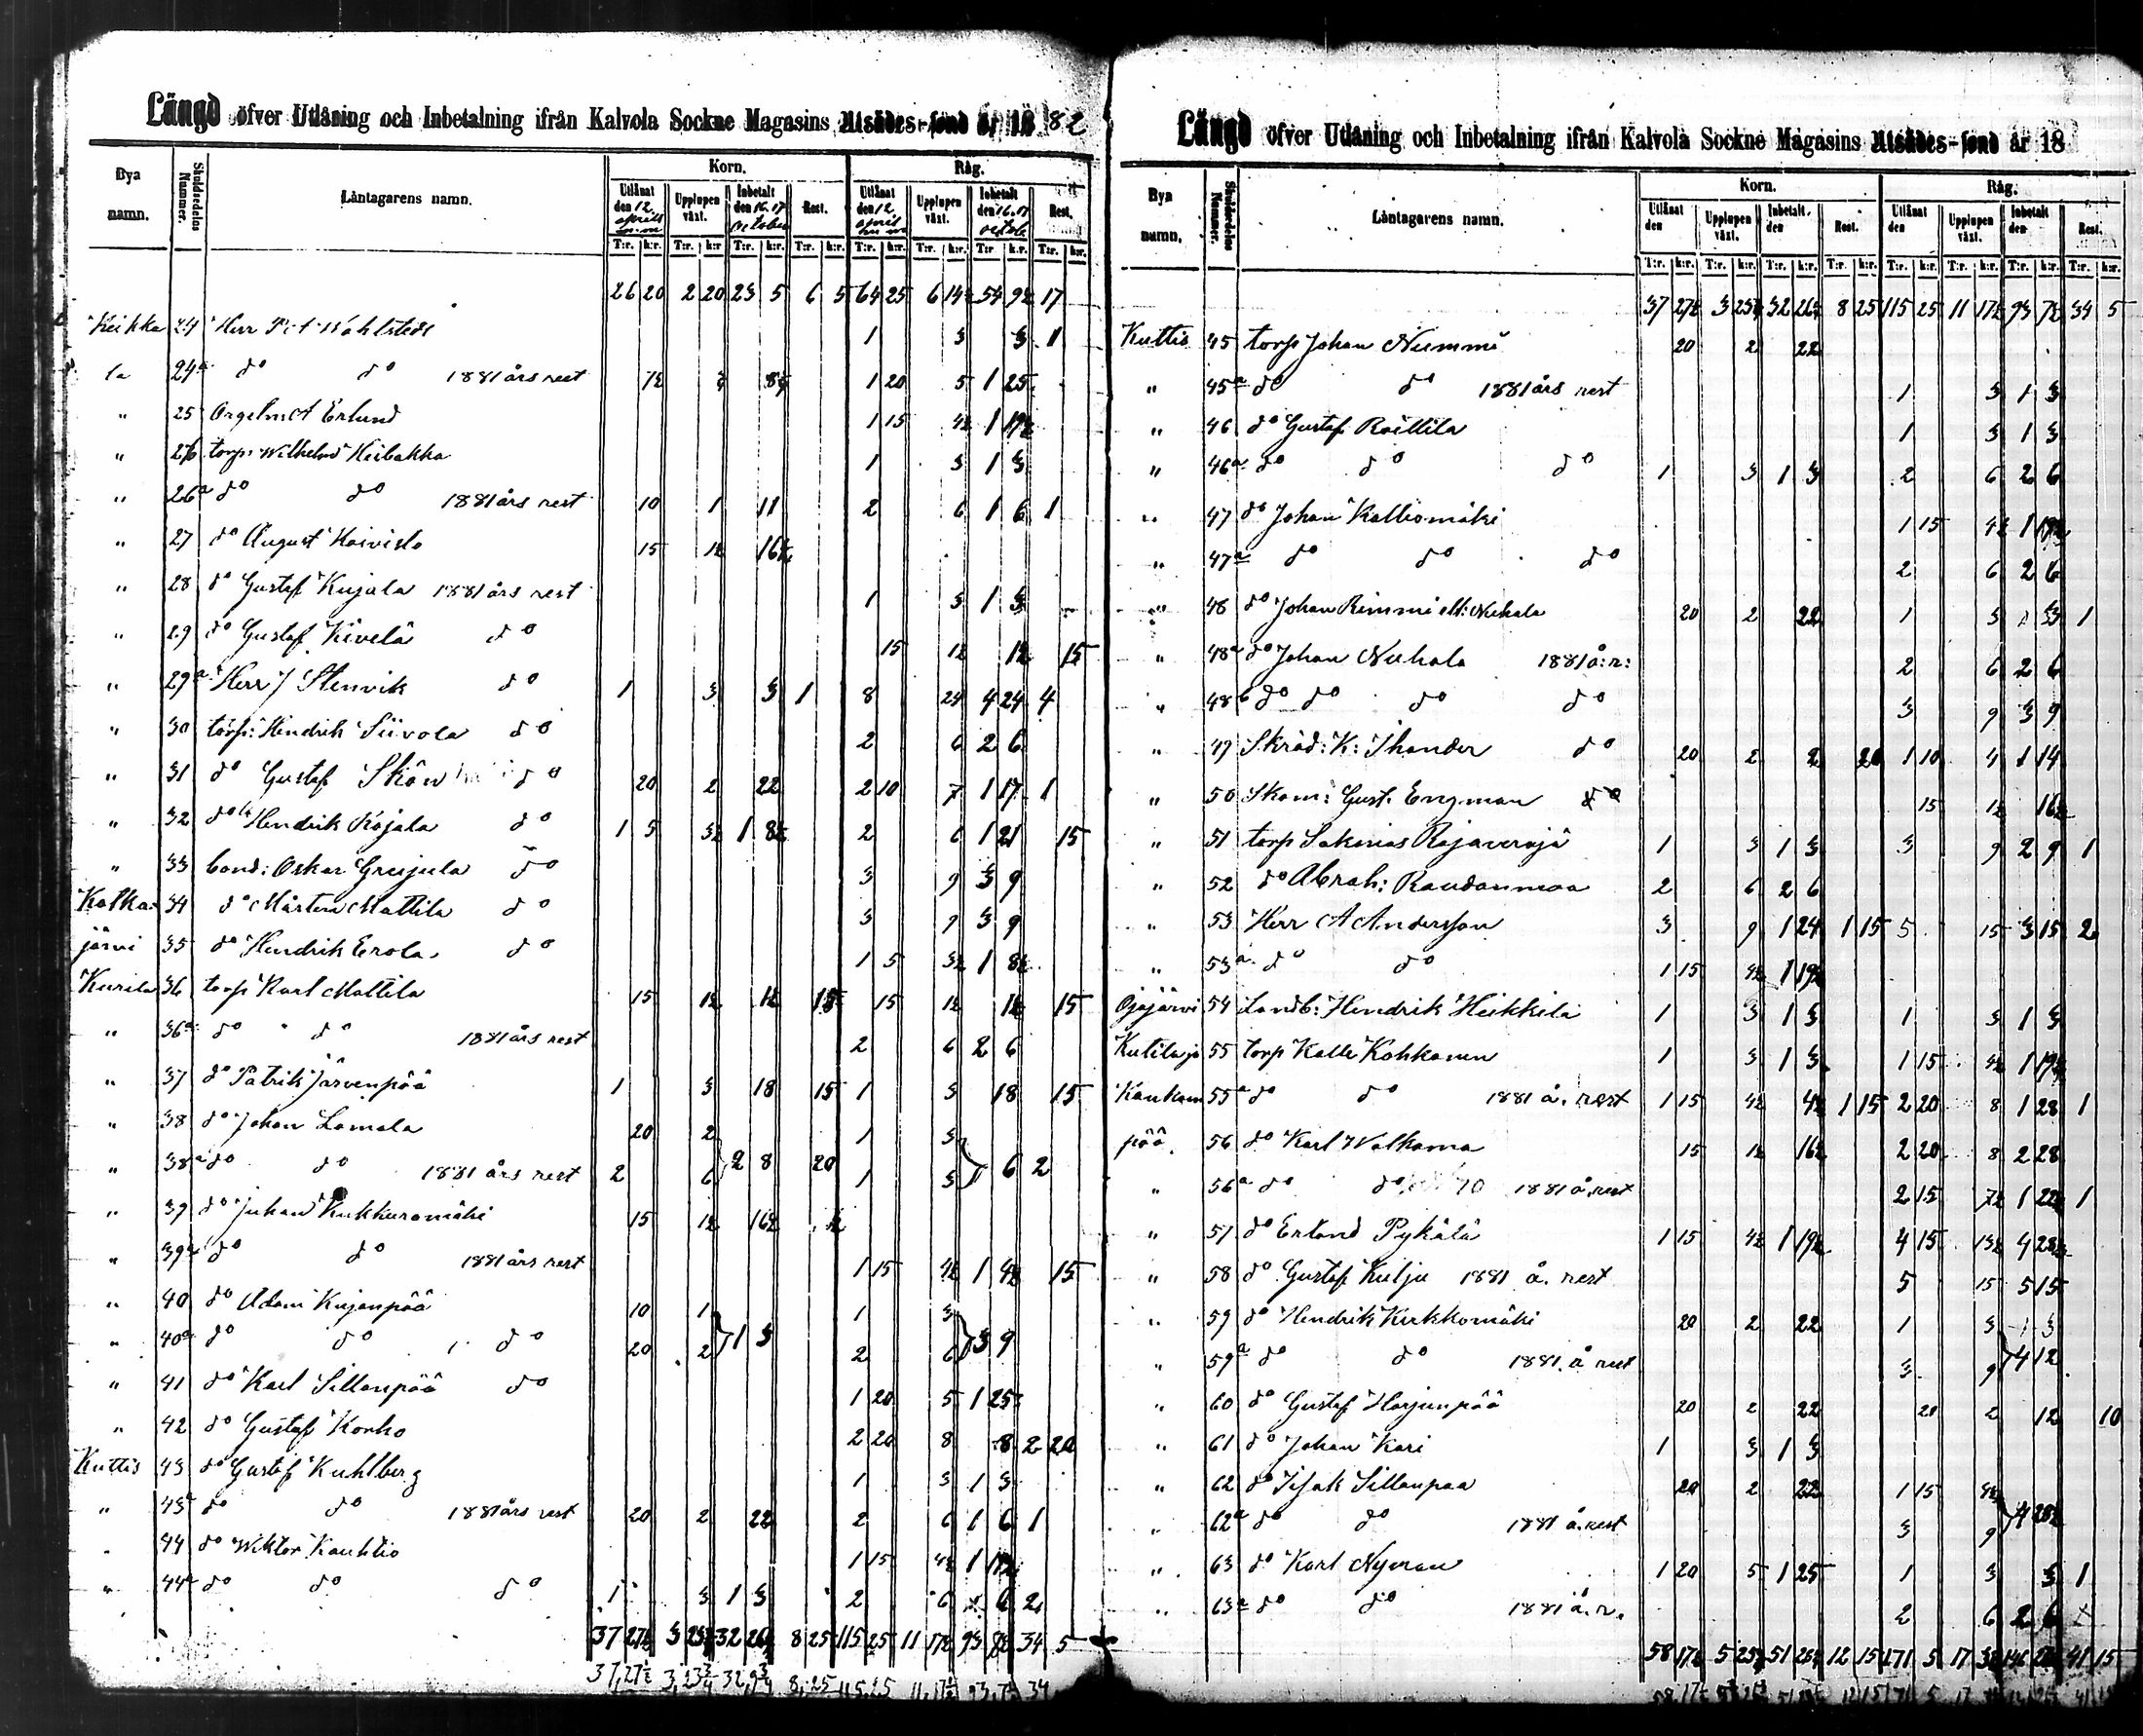 Längd öfver Utlåning och Inbetalning ifrån Kalvola Sockne Magasins Utsädes-fond år 1882
Bya namn. Skuldsedelns Nummer. Låntagarens namn. Korn. Råg.
Utlånat den 12 aprill Upplupen växt. Inbetalt den 16.17 October Rest. Utlånat den 12. april Upplupen växt. Inbetalt den 16.17 Rest.
T:r. k:r. T:r. k:r. T:r. k:r. T:r. k:r. T:r. k:r. T:r. k:r. T:r. k:r. T:r. k:r.
26 20 2 20 23 5 6 5 64 25 6 14½ 54 9½ 17
Keikka 24 Herr 1 3 3 1
la 24a do do 1881 års rest 7½ ¾ 8¼ 1 20 5 1 25
" 25 Erlund 1 15 4½ 1 19½
" 26 torp: Wilhelm 1 3 1 3
" 26a do do 1881 års rest 10 1 11 2 6 1 6 1
" 27 do August Koivisto 15 1½ 16½
" 28 do Gustaf Kujala 1881 års rest 1 3 1 3
" 29 do Gustaf Kivelä do 15 1½ 1½ 15
" 29a Herr J Stenvik do 1 3 3 1 8 24 4 24 4
" 30 torp: Hendrik Siivola do 2 6 2 6
" 31 do Gustaf Skön do 20 2 22 2 10 7 1 17 1
" 32 do Hendrik Rojala do 1 5 3½ 1 8½ 2 6 1 21 15
" 33 bond: Oskar Greijula do 3 9 3 9
Kotka 34 do Mårten Mattila do 3 9 3 9
järvi 35 do Hendrik Erola do 1 5 3½ 1 8½
Kurila 36 torp Karl Mattila 15 1½ 1½ 15 15 1½ 1½ 15
" 36a do do 1881 års rest 2 6 2 6
" 37 do Patrik Järvenpää 1 3 18 15 1 3 18 15
" 38 do Johan Lamala 20 2 1 3
" 38a do do 1881 års rest 2 6 2 8 20 1 3 6 2
" 39 do Juhan Kukkuromäki 15 1½ 16½ ½
" 39a do do 1881 års rest 1 15 4½ 1 4½ 15
" 40 do Adam Kujanpää 10 1 1 3
" 40a do do do 20 2 1 3 2 6 3 9
" 41 do Karl Sillanpää do 1 20 5 1 25
" 42 do Gustaf Korho 2 20 8 8 2 20
Kuttis 43 do Gustaf Kuhlberg 1 3 1 3
" 43a do do 1881 års rest 20 2 22 2 6 1 6 1
" 44 do Wiktor Kauhtio 1 15 4½ 1 19½
" 44a do do do 1 3 1 3 2 6 6 2
37 27½ 3 23¾ 32 26¼ 8 25 115 25 11 17½ 93 7½ 34 5
37,27½ 3,23¾ 32,9¾ 8,25 115,25 11,17½ 93,7½ 34
Längd öfver Utlåning och Inbetalning ifrån Kalvola Sockne Magasins Utsädes-fond år 18
Bya namn. Skuldsedelns Nummer. Låntagarens namn. Korn. Råg.
Utlånat den Upplupen växt. Inbetalt den Rest. Utlånat den Upplupen växt. Inbetalt den Rest.
T:r. k:r. T:r. k:r. T:r. k:r. T:r. k:r. T:r. k:r. T:r. k:r. T:r. k:r. T:r. k:r.
37 27½ 3 23¾ 32 26¼ 8 25 115 25 11 17½ 93 7½ 34 5
Kuttis 45 torp Johan Nummi 20 2 22
" 45a do do 1881 års rest 1 3 1 3
" 46 do Gustaf Roittila 1 3 1 3
" 46a do do do 1 3 1 3 2 6 2 6
" 47 do Johan Kalliomäki 1 15 4½ 1 19½
" 47a do do do 2 6 2 6
" 48 do Johan Rimmi 20 2 22 1 3 3 1
" 48a do Johan Niuhala 1881 å:r: 2 6 2 6
" 48b do do do do 3 9 3 9
" 49 Skräd: K: Ihander do 20 2 2 20 1 10 4 1 14
" 50 Skom: Gust. Engman do 15 1½ 16½
" 51 torp Sakarias Rajaveräjä 1 3 1 3 3 9 2 9 1
" 52 do Abrah: Raudanmaa 2 6 2 6
" 53 Herr A Andersson 3 9 1 24 1 15 5 15 3 15 2
" 53a do do 1 15 4½ 1 19½
Ojajärvi 54 Landb: Hendrik Heikkilä 1 3 1 3 1 3 1 3
Kutilaja 55 torp Kalle Kohkanen 1 3 1 3 1 15 4½ 1 19½
Kankam 55a do do 1881 å. rest 1 15 4½ 4½ 1 15 2 20 8 1 28 1
pää. 56 do Karl Walkama 15 1½ 16½ 2 20 8 2 28
" 56a do do 1881 å. rest 2 15 7½ 1 22½ 1
" 57 do Erland Pykälä 1 15 4½ 1 19½ 4 15 13½ 4 28½
" 58 do Gustaf Kulju 1881 å. rest 5 15 5 15
" 59 do Hendrik Kirkkomäki 20 2 22 1 3 1 3
" 59a do do 1881. å rest 3 9 4 12
" 60 do Gustaf Harjunpää 20 2 22 20 2 12 10
" 61 do Johan Kari 1 3 1 3
" 62 do Iisak Sillanpaa 20 2 22 1 15 4½
" 62a do do 1881 å. rest 3 9 4 28½
" 63 do Karl Nyman 1 20 5 1 25 1 3 3 1
" 63a do do 1881 å. r. 2 6 2 6
58 17½ 5 25¾ 51 25¾ 12 15 171 5 17 41 15